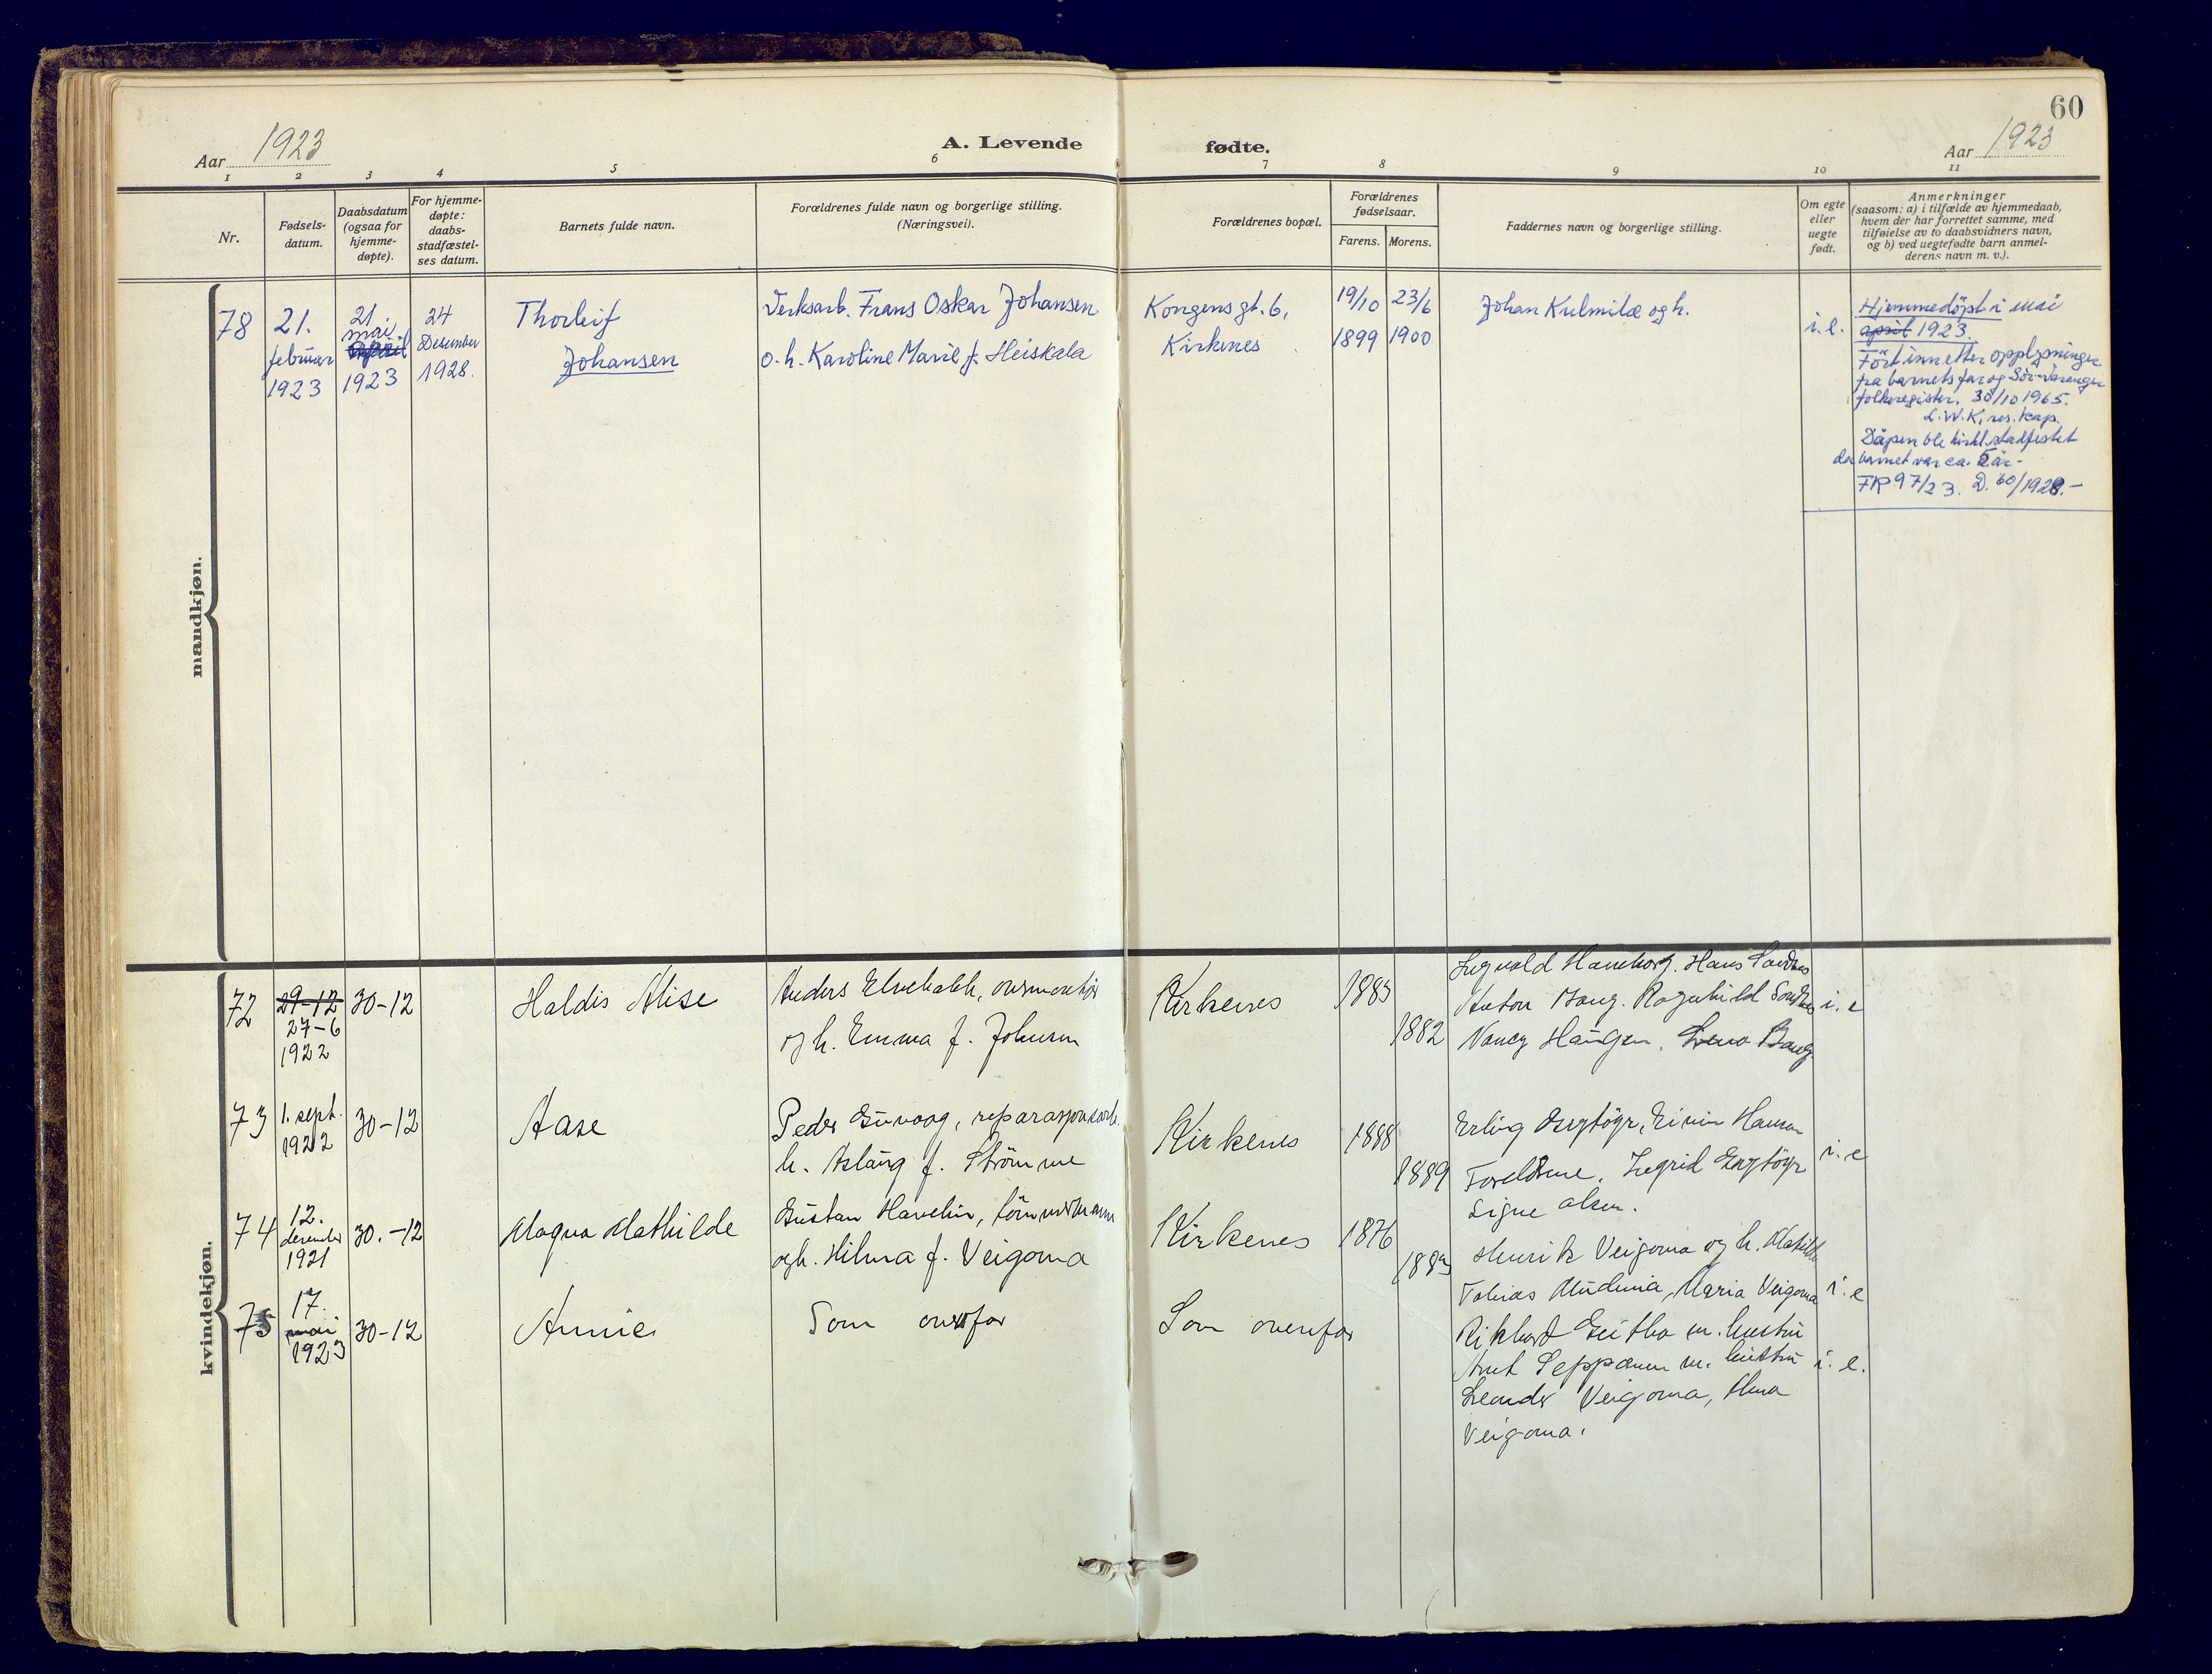 60
Aar 1923
A. Levende fødte.
Aar 1923
1 2 3 4 5 6 7 8 9 10 11
Nr.
Fødsels-
datum.
Daabsdatum
(ogsaa for
hjemme-
døpte).
For hjemme-
døpte:
daabs-
stadfæstel-
ses datum.
Barnets fulde navn.
Forældrenes fulde navn og borgerlige stilling.
(Næringsvei).
Forældrenes bopæl.
Forældrenes
fødselsaar.
Farens. Morens.
Faddernes navn og borgerlige stilling.
Om egte
eller
uegte
født.
Anmerkninger
(saasom: a) i tilfælde av hjemmedaab,
hvem der har forrettet samme, med
tilføielse av to daabsvidners navn,
og b) ved uegtefødte barn anmel-
derens navn m. v.).
mandkjøn.
78
21.
februar
1923
21
mai
april
1923
24
Desember
1928.
Thorleif
Johansen
Verksarb. Frans Oskar Johansen
o.h. Karoline Marie f. Heiskala
Kongensgt. 6,
Kirkenes
19/10
1899
23/6
1900
Johan Kulmilæ og h.
i. e.
Hjemmedöpt i mai
april 1923.
Fört inn etter opplysninger
fra barnets far og Sör-Varanger
folkeregister. 30/10 1965.
L.W.K, res. kap.
Dåpen ble kirkl. stadfestet
da barnet var ca. 5 år-
FR 97/23. D. 60/1928.-
kvindekjøn.
72
29-12
27-6
1922
30-12
Haldis Alise
Anders Elvebakk,
og h. Emma f. Johnsen
Kirkenes
1883
1882
Hans
Anton Ragnhild
Nancy Haugen. Bang
i. e
73
1. sept.
1922
30-12
Aase
Peder
h. Aslaug f. Strömme
Kirkenes
1888
1889
Erling Hansen
Foreldrene. Ingrid
Signe Olsen.
i. e
74
12.
desember
1921
30.-12
Magna Mathilde
Gustav Havelin, tömmermann
og h. Hilma f. Veigoma
Kirkenes
1876
1883
Henrik Veigoma og h. Matilde
Tobias Maria Veigoma
i. e
75
17.
mai
1923
30-12
Annie
Som ovenfor
Som ovenfor
Rikhard m. hustru
Seppænen m. hustru
Leander Veigoma,
Veigoma.
i. e.